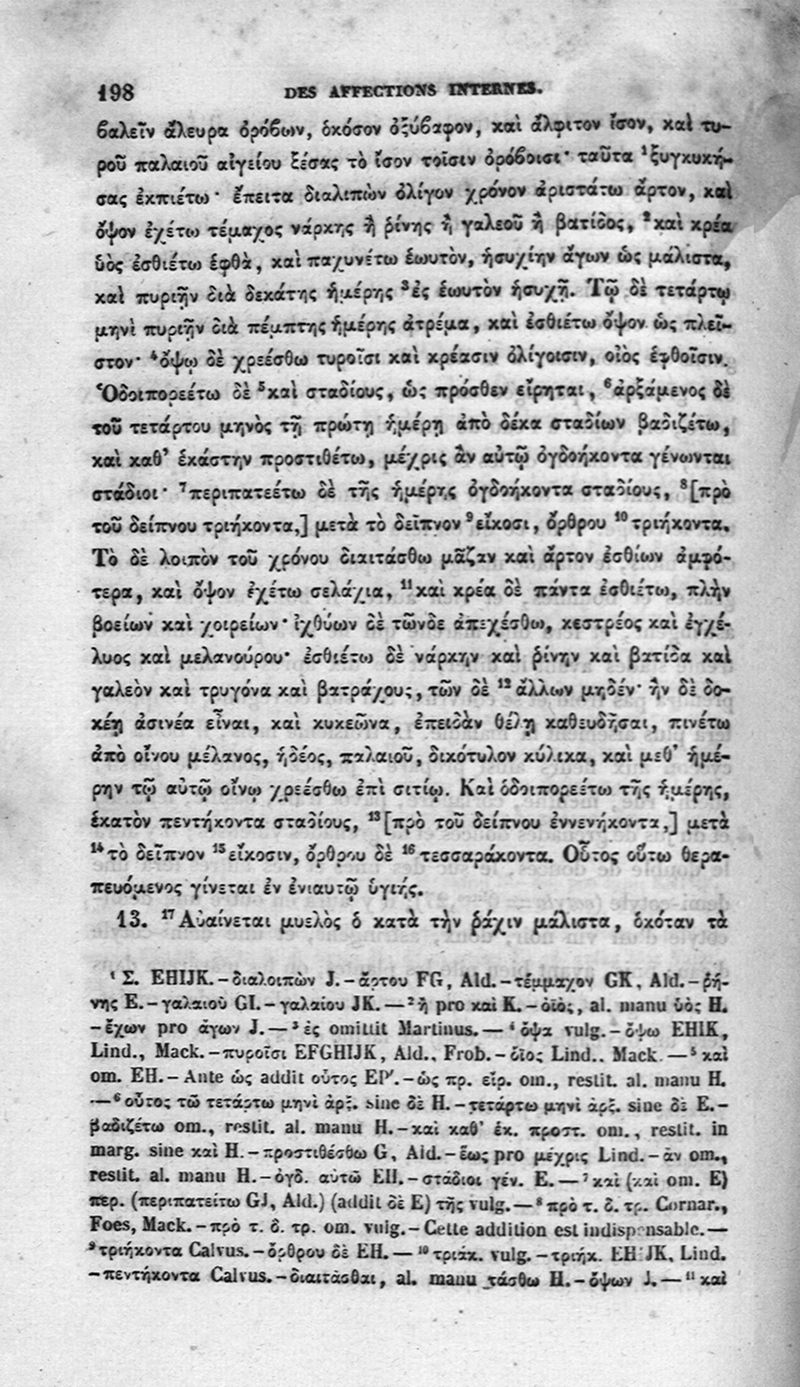 198 DES AFFECTIONS INTERNES.
βαλεῖν ἄλευρα ὀρόβων, ὁκόσον ὀξύβαφον, καὶ ἄλφιτον ἴσον, καὶ τυ-
ροῦ παλαιοῦ αἰγείου ξέσας τὸ ἴσον τοῖσιν ὀρόβοισι· ταῦτα ¹ξυγκυκή-
σας ἐκπιέτω· ἔπειτα διαλιπὼν ὀλίγον χρόνον ἀριστάτω ἄρτον, καὶ
ὄψον ἐχέτω τέμαχος νάρκης ἢ ῥίνης ἢ γαλεοῦ ἢ βατίδος, ²καὶ κρέα
ὑὸς ἐσθιέτω ἑφθὰ, καὶ παχυνέτω ἑωυτὸν, ἡσυχίην ἄγων ὡς μάλιστα,
καὶ πυριῇν διὰ δεκάτης ἡμέρης ³ἐς ἑωυτὸν ἡσυχῇ. Τῷ δὲ τετάρτῳ
μηνὶ πυριῇν διὰ πέμπτης ἡμέρης ἀτρέμα, καὶ ἐσθιέτω ὄψον ὡς πλεῖ-
στον· ⁴ὄψῳ δὲ χρεέσθω τυροῖσι καὶ κρέασιν ὀλίγοισιν, οἰὸς ἑφθοῖσιν.
Ὁδοιπορεέτω δὲ ⁵καὶ σταδίους, ὡς πρόσθεν εἴρηται, ⁶ἀρξάμενος δὲ
τοῦ τετάρτου μηνὸς τῇ πρώτῃ ἡμέρῃ ἀπὸ δέκα σταδίων βαδιζέτω,
καὶ καθ' ἑκάστην προστιθέτω, μέχρις ἂν αὐτῷ ὀγδοήκοντα γένωνται
στάδιοι· ⁷περιπατεέτω δὲ τῆς ἡμέρης ὀγδοήκοντα σταδίους, ⁸[πρὸ
τοῦ δείπνου τριήκοντα,] μετὰ τὸ δεῖπνον ⁹εἴκοσι, ὄρθρου ¹⁰τριήκοντα.
Τὸ δὲ λοιπὸν τοῦ χρόνου διαιτάσθω μᾶζαν καὶ ἄρτον ἐσθίων ἀμφό-
τερα, καὶ ὄψον ἐχέτω σελάχια, ¹¹καὶ κρέα δὲ πάντα ἐσθιέτω, πλὴν
βοείων καὶ χοιρείων· ἰχθύων δὲ τῶνδε ἀπεχέσθω, κεστρέος καὶ ἐγχέ-
λυος καὶ μελανούρου· ἐσθιέτω δὲ νάρκην καὶ ῥίνην καὶ βατίδα καὶ
γαλεὸν καὶ τρυγόνα καὶ βατράχους, τῶν δὲ ¹²ἄλλων μηδέν· ἢν δὲ δο-
κέῃ ἀσινέα εἶναι, καὶ κυκεῶνα, ἐπειδὰν θέλῃ καθευδῆσαι, πινέτω
ἀπὸ οἴνου μέλανος, ἡδέος, παλαιοῦ, δικότυλον κύλικα, καὶ μεθ' ἡμέ-
ρην τῷ αὐτῷ οἴνῳ χρεέσθω ἐπὶ σιτίῳ. Καὶ ὁδοιπορεέτω τῆς ἡμέρης,
ἑκατὸν πεντήκοντα σταδίους, ¹³[πρὸ τοῦ δείπνου ἐννενήκοντα,] μετὰ
¹⁴τὸ δεῖπνον ¹⁵εἴκοσιν, ὄρθρου δὲ ¹⁶τεσσαράκοντα. Οὗτος οὕτω θερα-
πευόμενος γίνεται ἐν ἐνιαυτῷ ὑγιής.
13. ¹⁷Αὐαίνεται μυελὸς ὁ κατὰ τὴν ῥάχιν μάλιστα, ὁκόταν τὰ
¹ Σ. EHIJK. – διαλοιπὼν J. – ἄρτου FG, Ald. – τέμμαχον GK, Ald. – ῥή-
νης E. – γαλαιοὺ GI. – γαλαίου JK. — ² ἢ pro καὶ K. – οἰὸς, al. manu ὑὸς H.
– ἔχων pro ἄγων J. — ³ ἐς omittit Martinus. — ⁴ ὄψα vulg. – ὄψω EHIK,
Lind., Mack. – πυροῖσι EFGHIJK, Ald., Frob. – ὄϊος Lind., Mack. — ⁵ καὶ
om. EH. – Ante ὡς addit οὗτος EP'. – ὡς πρ. εἰρ. om., restit. al. manu H.
— ⁶ οὗτος τῶ τετάρτω μηνὶ ἀρξ. sine δὲ H. – τετάρτω μηνὶ ἀρξ. sine δὲ E. –
βαδιζέτω om., restit. al. manu H. – καὶ καθ' ἑκ. προστ. om., restit. in
marg. sine καὶ H. – προστιθέσθω G, Ald. – ἕως pro μέχρις Lind. – ἀν om.,
restit. al. manu H. – ὀγδ. αὐτῶ EH. – στάδιοι γέν. E. — ⁷ καὶ (καὶ om. E)
περ. (περιπατείτω GJ, Ald.) (addit δὲ E) τῆς vulg. — ⁸ πρὸ τ. δ. τρ. Cornar.,
Foes, Mack. – πρὸ τ. δ. τρ. om. vulg. – Cette addition est indispensable. —
⁹ τριήκοντα Calvus. – ὄρθρου δὲ EH. — ¹⁰ τριάκ. vulg. – τριήκ. EHIJK, Lind.
– πεντήκοντα Calvus. – διαιτᾶσθαι, al. manu τάσθω H. – ὄψων J. — ¹¹ καὶ